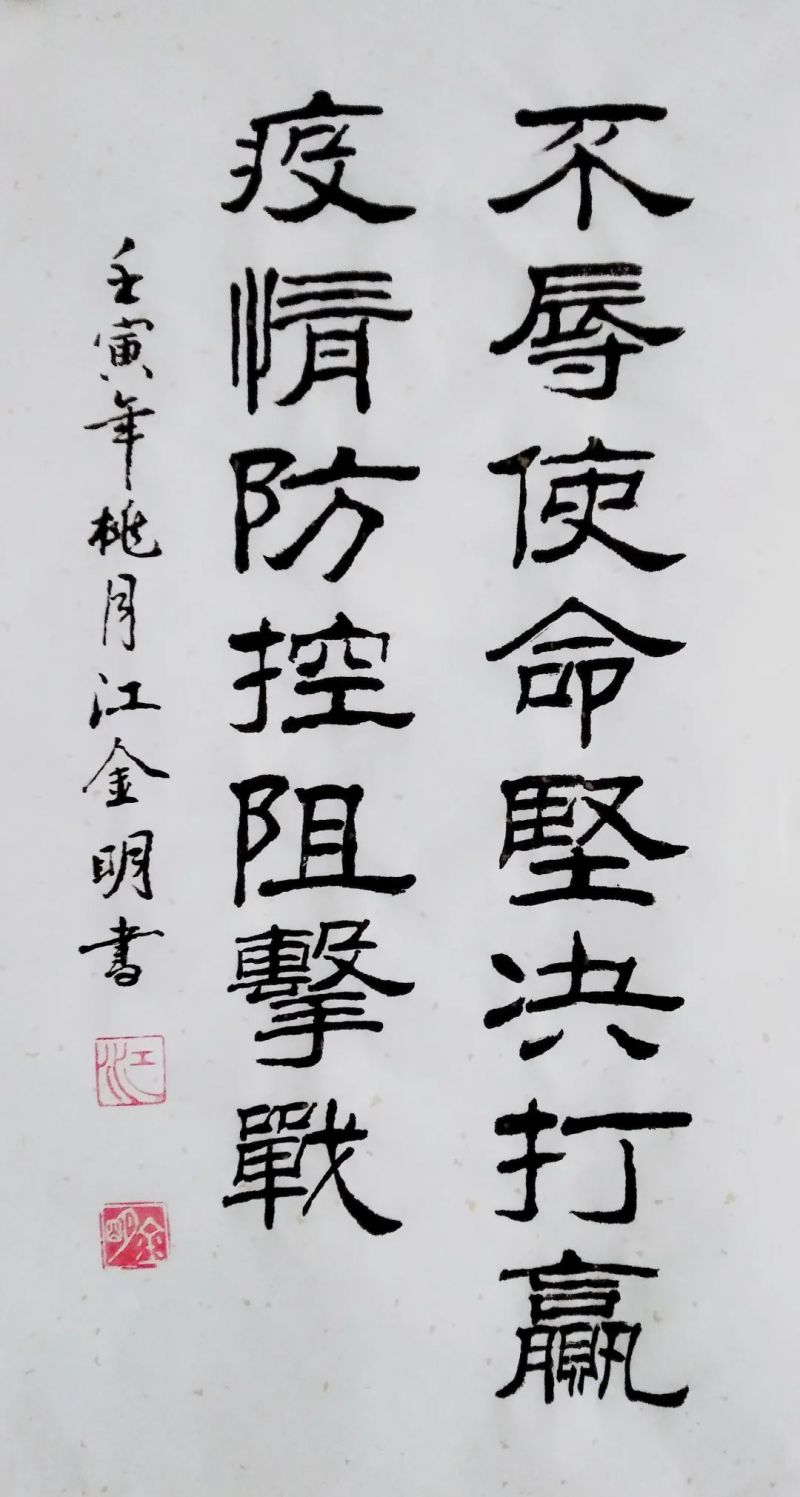 不辱使命堅决打贏
疫情防控阻擊戰
壬寅年桃月江金明書
江
金明